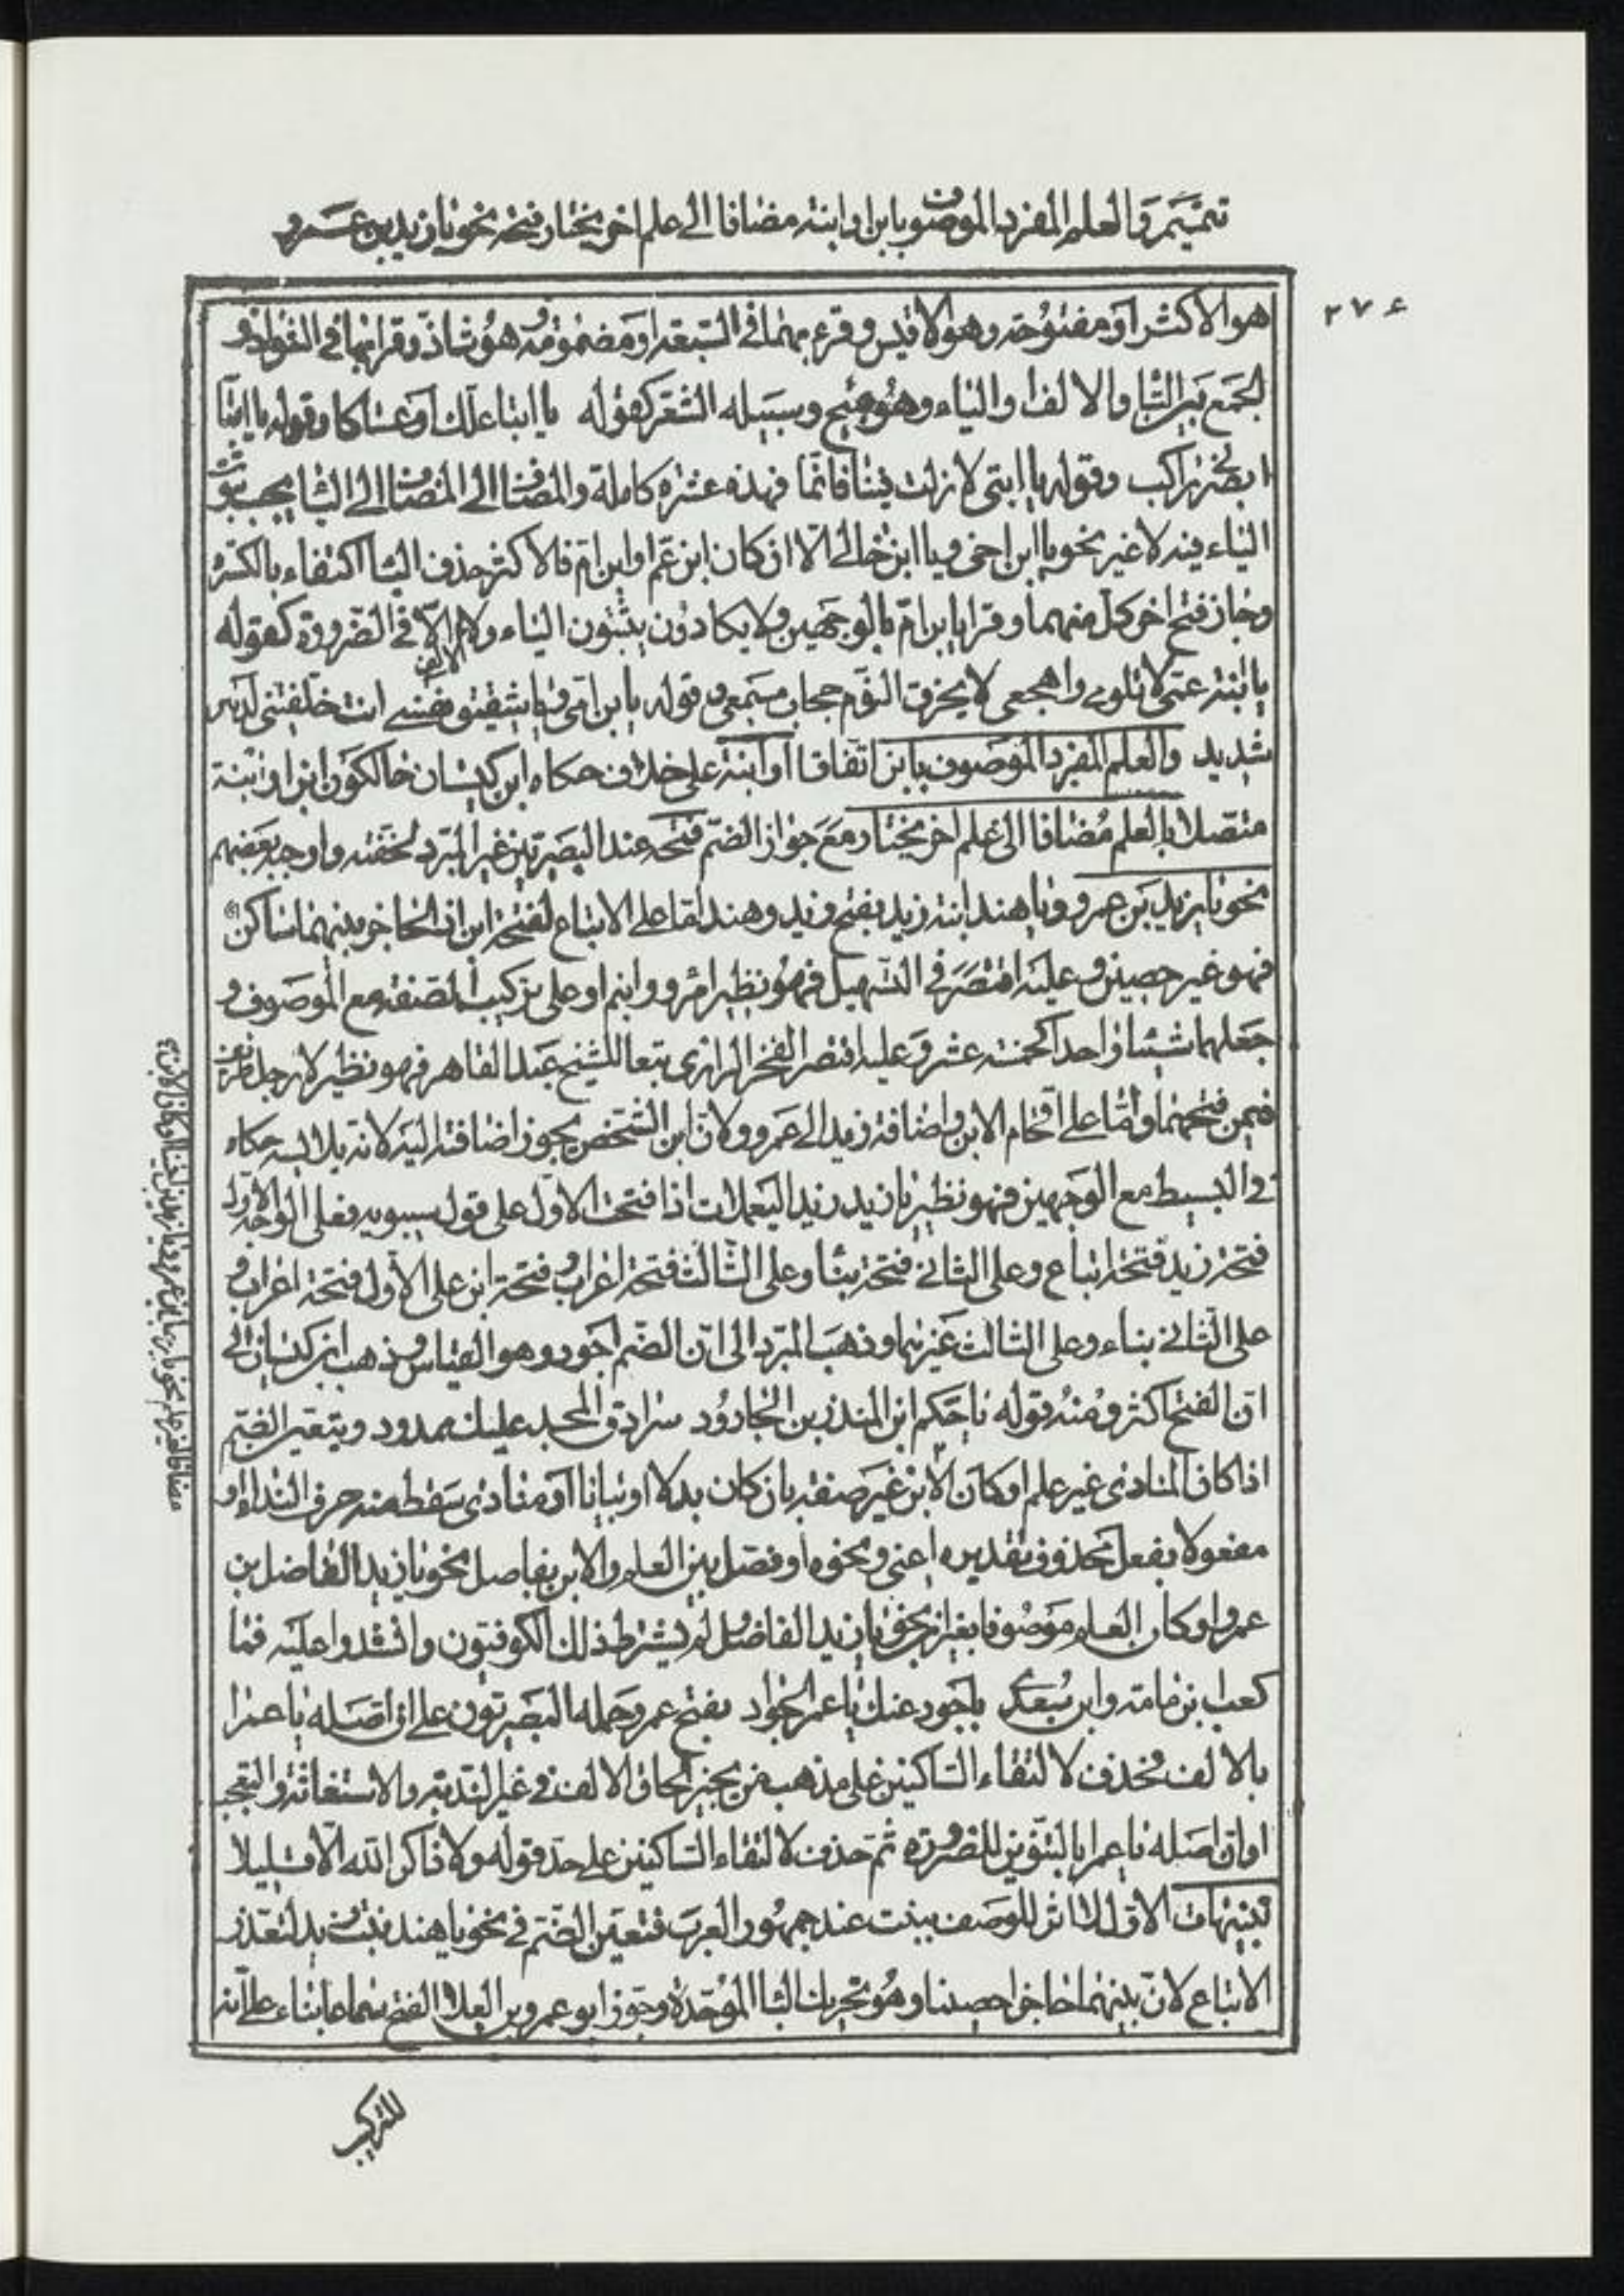 تتميم والعلم المفرد الموصوف بابن او ابنته مضافا الى علم اخر يختار فتحه نحو يا زيد بن عمرو
٢٧٤
هو الاكثر او مفتوحة وهو الاقيس وقرء بهما في السبعة او مضمومة وهو شاذ وقرا بها في الشواذ و
الجمع بين التا والالف او الياء وهو قبيح وسبيله الشعر كقوله يا ابتا علك او عساكا وقوله يا ابتا
ابصرني راكب وقوله يا ابتي لا زلت فينا فانما فهذه عشرة كاملة والمضاف الى المضاف الى اليا يجب ثبوت
الياء فيه لا غير نحو يا ابن اخي ويا ابن خالي الا ان كان ابن عم او ابن ام فالاكثر حذف اليا اكتفاء بالكسرة
وجاز فتح اخر كل منهما وقرا يا ابن ام بالوجهين ولا يكادون يثبتون الياء ولا الالف الا في الضرورة كقوله
يا ابنة عمي لا تلومي واهجعي لا يخرق اللوم حجاب مسمعي وقوله يا بن امي ويا شقيق نفسي انت خلفتني لدهر
شديد والعلم المفرد الموصوف بابن اتفاقا او ابنة على خلاف حكاه ابن كيسان حالكون ابن او ابنة
متصلا بالعلم مضافا الى علم اخر يختار مع جواز الضم فتحه عند البصريين غير المبرد لخفته واوجبه بعضهم
نحو يا زيد بن عمرو ويا هند ابنة زيد بفتح زيد وهند اما على الاتباع لفتحة ابن اذ الحاجز بينهما ساكن
فهو غير حصين وعليه اقتصر في التسهيل فهو نظير امرؤ وابنم او على تركيب الصفة مع الموصوف و
جعلهما شيئا واحدا كخمسة عشر وعليه اقتصر الفخر الرازي تبعا للشيخ عبد القاهر فهو نظير لا رجل ظريف
فيمن فتحهما واما على اقحام الابن واضافة زيد الى عمرو ولان ابن الشخص يجوز اضافته اليه لانه يلابسه حكاه
في البسيط مع الوجهين فهو نظير يا زيد زيد اليعملات اذا فتحت الاول على قول سيبويه فعلى الوجه الاول
فتحة زيد فتحة اتباع وعلى الثاني فتحة بنا وعلى الثالث فتحة اعراب وفتحة ابن على الاول فتحة اعراب و
على الثاني بناء وعلى الثالث غيرهما وذهب المبرد الى ان الضم اجود وهو القياس وذهب ابن كيسان الى
ان الفتح اكثر ومنه قوله يا حكم ابن المنذر بن الجارود سرادق المجد عليك ممدود ويتعين الضم
اذا كان المنادى غير علم او كان الابن غير صفته بان كان بدلا او بيانا او منادى سقط منه حرف النداء او
مفعولا بفعل محذوف تقديره اعني ونحوه او فصل بين العلم والابن بفاصل نحو يا زيد الفاضل بن
عمرو او كان العلم موصوفا بغير ابن نحو يا زيد الفاضل لم يشترط ذلك الكوفيون وانشدوا عليه فما
كعب ابن مامة وابن سعدى باجود عنك يا عمر الجواد بفتح عمر وحمله البصريون على ان اصله يا عمرا
بالالف فحذف لالتقاء الساكنين على مذهب من يجيز الحاق الالف في غير الندبة والاستغاثة والتعجب
او ان اصله يا عمرا بالتنوين للضرورة ثم حذف لالتقاء الساكنين على حد قوله ولا ذاكر الله الا قليلا
تنبيهات الاول لا اثر للوصف ببنت عند جمهور العرب فتعين الضم في نحو يا هند بنت زيد لتعذر
الاتباع لان بينهما حاجزا حصينا وهو تحريك البا الموحدة وجوز ابو عمرو بن العلا الفتح سماعا بناء على انه
للتركيب